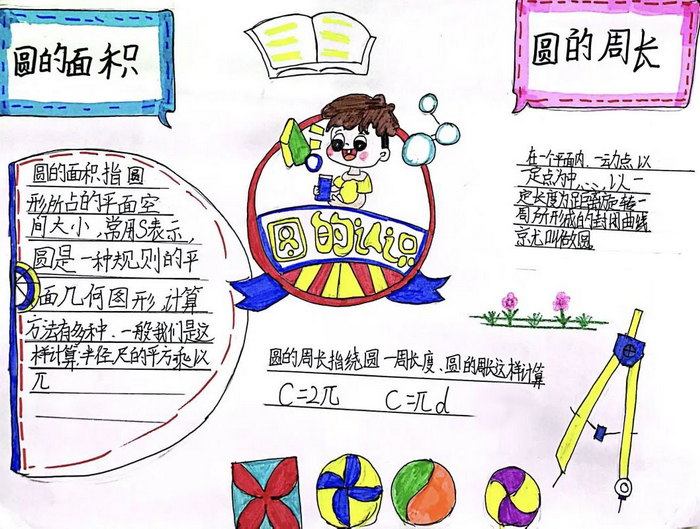 圆的面积
圆的周长
圆的认识
圆的面积指圆
形所占的平面空
间大小,常用S表示,
圆是一种规则的平
面几何图形.计算
方法有多种.一般我们是这
样计算:半径尺的平方乘以
兀
在一个平面内,一动点以
一定点为中、、、以一
定长度为距离旋转一
周所形成的封闭曲线
京尤叫做圆
圆的周长指绕圆一周长度、圆的周长这样计算
C=2兀 C=兀d